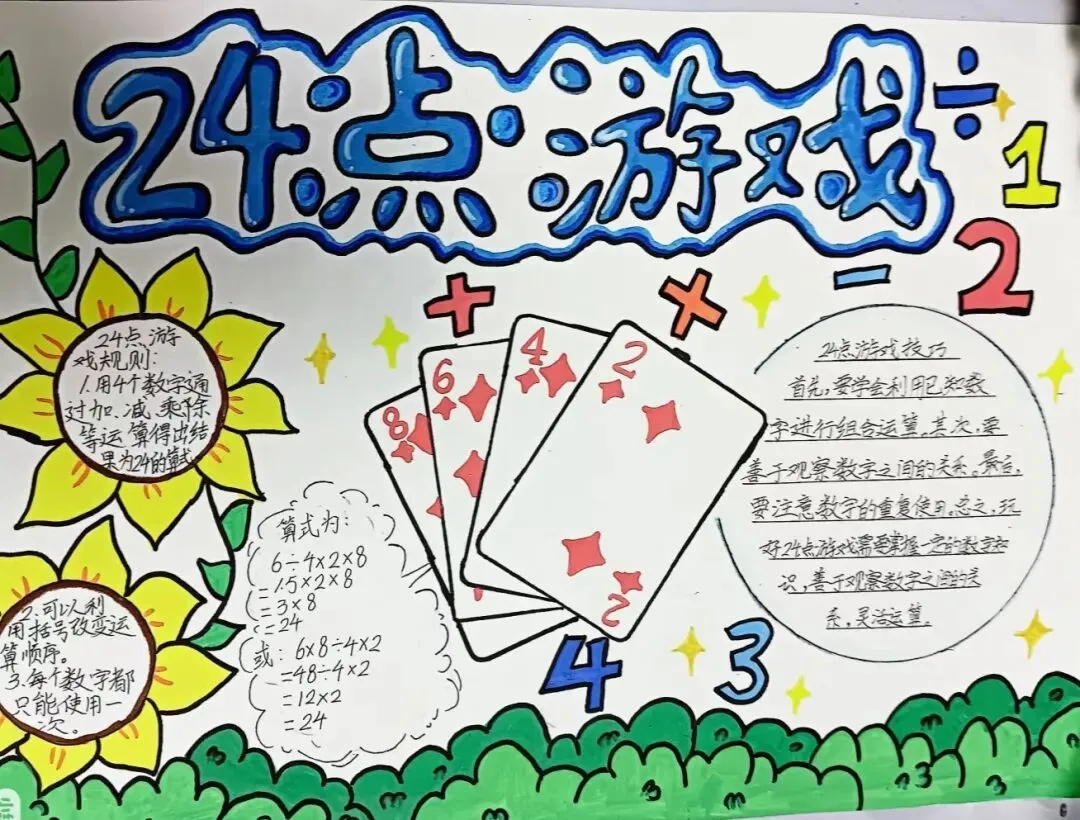 24点游戏
÷
1
2
+
×
−
24点游
戏规则：
1.用4个数字通
过加、减、乘、除
等运算得出结
果为24的算式
2.可以利
用括号改变运
算顺序。
3.每个数字都
只能使用一
次。
8
6
4
2
2
算式为：
6÷4×2×8
=1.5×2×8
=3×8
=24
或：6×8÷4×2
=48÷4×2
=12×2
=24
24点游戏技巧
首先，要学会利用已知数
字进行组合运算。其次，要
善于观察数字之间的关系。最后，
要注意数字的重复使用。总之，玩
好24点游戏需要掌握一定的数学知
识，善于观察数字之间的关
系，灵活运算。
4
3